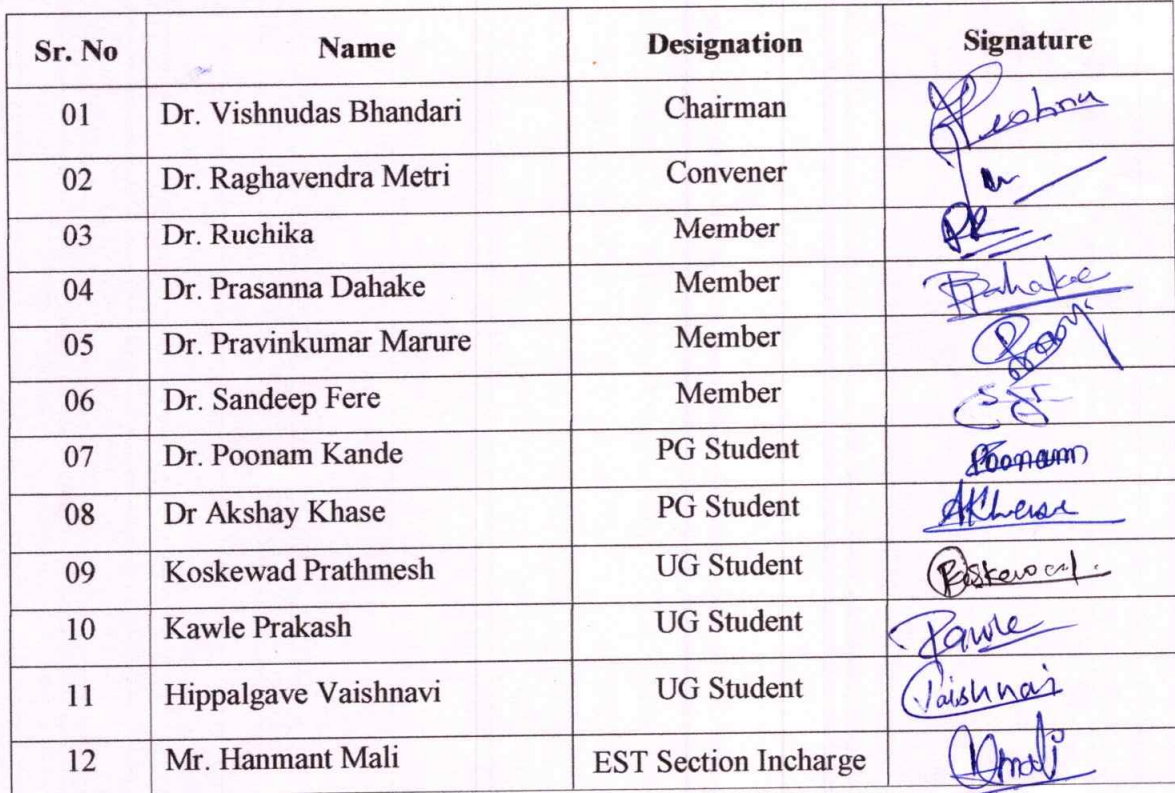 Sr. No Name Designation Signature
01 Dr. Vishnudas Bhandari Chairman
02 Dr. Raghavendra Metri Convener
03 Dr. Ruchika Member
04 Dr. Prasanna Dahake Member
05 Dr. Pravinkumar Marure Member
06 Dr. Sandeep Fere Member
07 Dr. Poonam Kande PG Student Poonam
08 Dr Akshay Khase PG Student AKhase
09 Koskewad Prathmesh UG Student
10 Kawle Prakash UG Student
11 Hippalgave Vaishnavi UG Student
12 Mr. Hanmant Mali EST Section Incharge